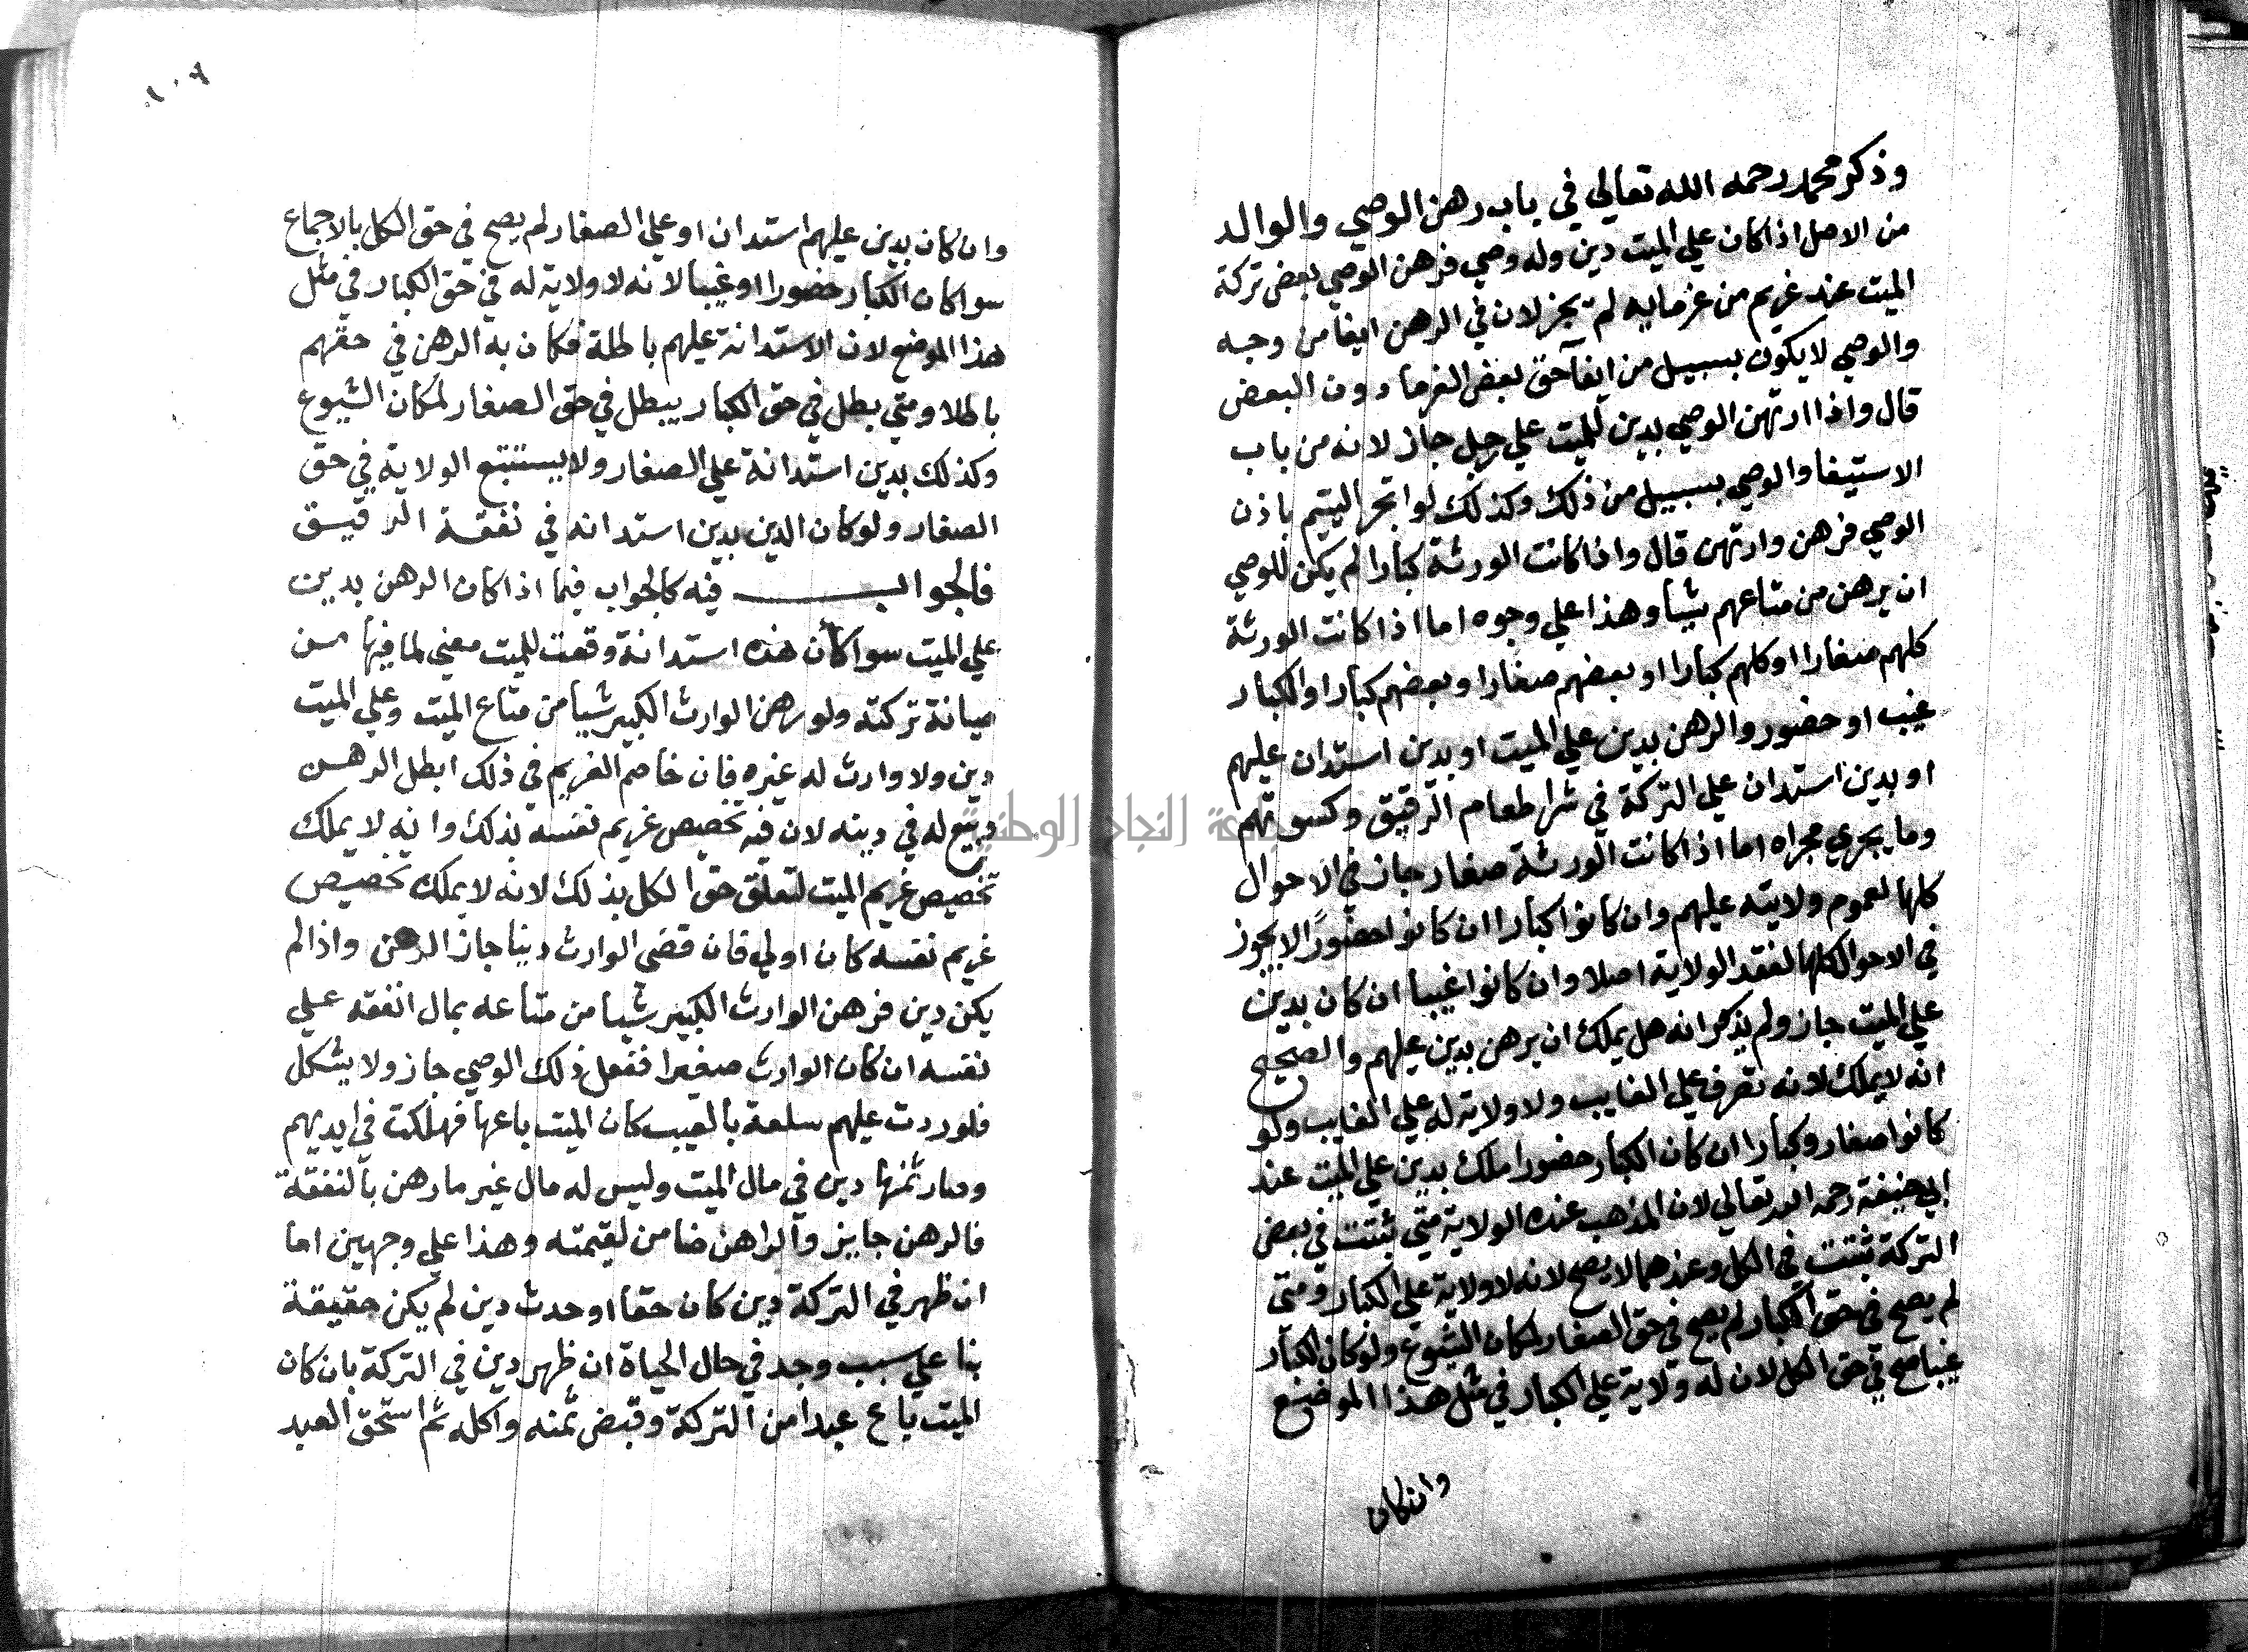 وذكر محمد رحمه الله تعالي في باب رهن الوصي والوالد
من الاصل اذا كان علي الميت دين وله وصي فرهن الوصي بعض تركة
الميت عند غريم من غرمايه لم يجز لان في الرهن ايفا من وجه
والوصي لا يكون بسبيل من ايفآ حق بعض الغرما دون البعض
قال واذا ارتهن الوصي بدين للميت علي رجل جاز لانه من باب
الاستيفا والوصي بسبيل من ذلك وكذلك لو اتجر اليتيم باذن
الوصي فرهن وارتهن قال واذا كانت الورثة كبارا لم يكن للوصي
ان يرهن من متاعهم شيأ وهذا علي وجوه اما اذا كانت الورثة
كلهم صغارا او كلهم كبارا او بعضهم صغارا وبعضهم كبارا والكبار
غيب او حضور والرهن بدين علي الميت او بدين استدان عليهم
او بدين استدان علي التركة في شرا طعام الرقيق وكسوتهم
وما يجري مجراه اما اذا كانت الورثة صغار جاز في الاحوال
كلها لعموم ولايته عليهم وان كانوا كبارا ان كانوا حضورًا لا يجوز
في الاحوال كلها لفقد الولاية اصلا وان كانوا غيبا ان كان بدين
علي الميت جاز ولم يذكر انه هل يملك ان يرهن بدين عليهم والصحيح
انه لا يملك لانه تصرف علي الغايب ولا ولاية له علي الغايب ولو
كانوا صغار وكبارا ان كان الكبار حضورا ملك بدين علي الميت عند
ابي حنيفة رحمه الله تعالي لان المذهب عنده الولاية متي ثبتت في بعض
التركة ثبتت في الكل وعندهما لا يصح لانه لا ولاية علي الكبار ومتى
لم يصح في حق الكبار لم يصح في حق الصغار لمكان الشيوع ولو كان الكبار
غيبا صح في حق الكل لان له ولاية علي الكبار في مثل هذا الموضع
وان كان
١٠٩
وان كان بدين عليهم استدان او علي الصغار لم يصح في حق الكل بالاجماع
سوا كان الكبار حضورا او غيبا لانه لا ولاية له في حق الكبار في مثل
هذا الموضع لان الاستدانة عليهم باطلة فكان به الرهن في حقهم
باطلا ومتي بطل في حق الكبار يبطل في حق الصغار لمكان الشيوع
وكذلك بدين استدانة علي الصغار ولا يستتبع الولاية في حق
الصغار ولو كان الدين بدين استدانه في نفقة الرقيق
فالجواب فيه كالجواب فيما اذا كان الرهن بدين
علي الميت سوا كان هذه استدانة وقعت للميت معني لما فيها من
صيانة تركته ولو رهن الوارث الكبير شيأ من متاع الميت وعلي الميت
دين ولا وارث له غيره فان خاصم الغريم في ذلك ابطل الرهن
وبيع له في دينه لان فيه تخصيص غريم نفسه بذلك وانه لا يملك
تخصيص غريم الميت لتعلق حق الكل بذلك لانه لا يملك تخصيص
غريم نفسه كان اولي فان قضي الوارث دينا جاز الرهن واذا لم
يكن دين فرهن الوارث الكبير شيأ من متاعه بمال انفقه علي
نفسه ان كان الوارث صغيرا ففعل ذلك الوصي جاز ولا يشكل
فلو ردت عليهم سلعة بالعيب كان الميت باعها فهلكت في ايديهم
وصار ثمنها دين في مال الميت وليس له مال غير ما رهن بالنفقة
فالرهن جايز والراهن ضامن لقيمته وهذا علي وجهين اما
ان ظهر في التركة دين كان حقا او حدث دين لم يكن حقيقة
بنا علي سبب وجد في حال الحياة ان ظهر دين في التركة بان كان
الميت باع عبدا من التركة وقبض ثمنه واكله ثم استحق العبد
جامعة النجاح الوطنية